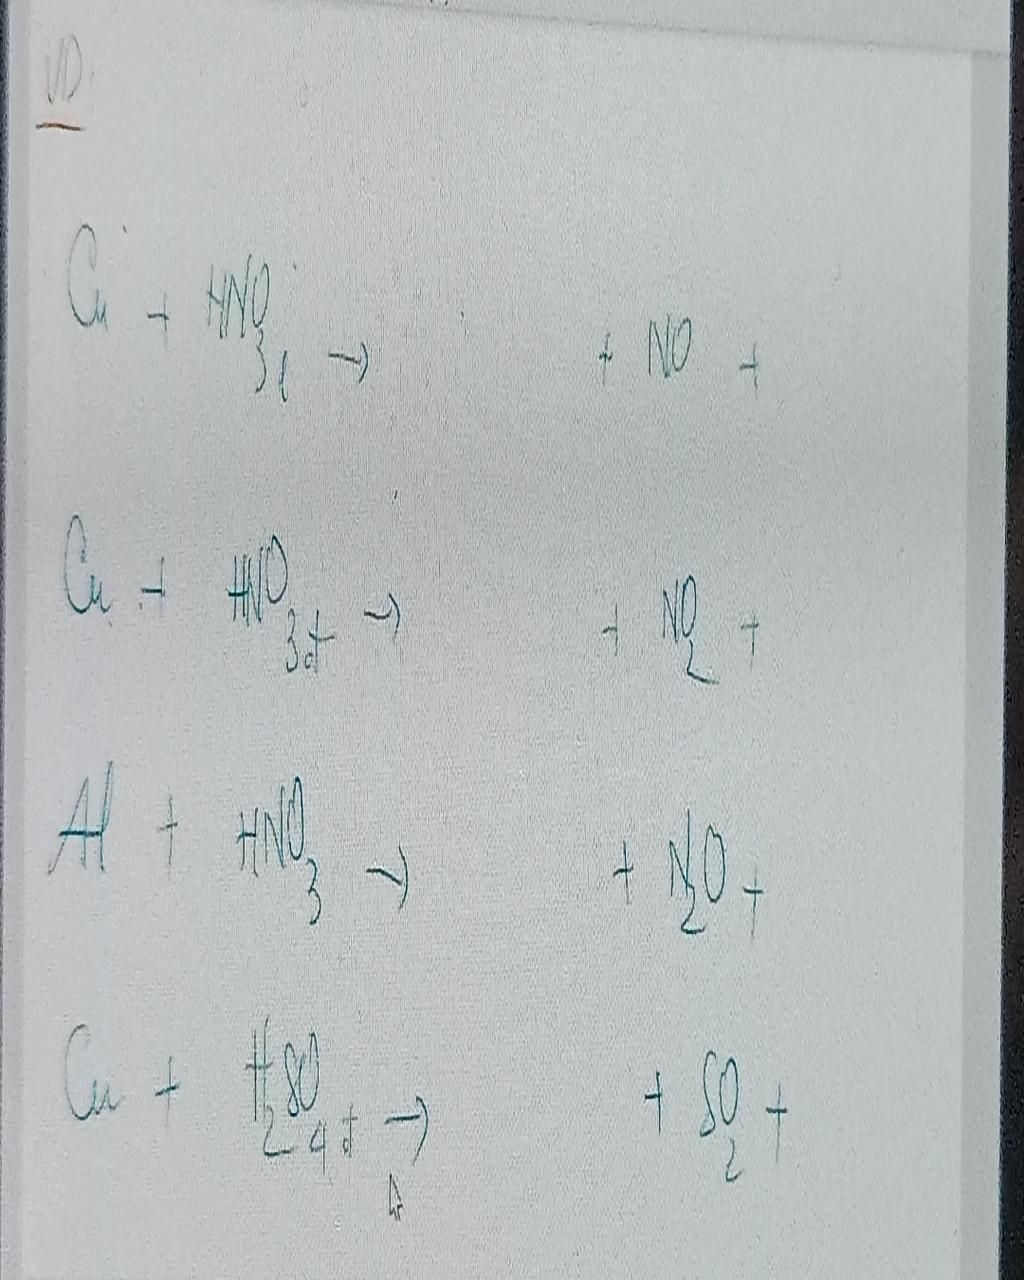 VD.
Cu + HNO3l → + NO +
Cu + HNO3đ → + NO2 +
Al + HNO3 → + N2O +
Cu + H2SO4đ → + SO2 +